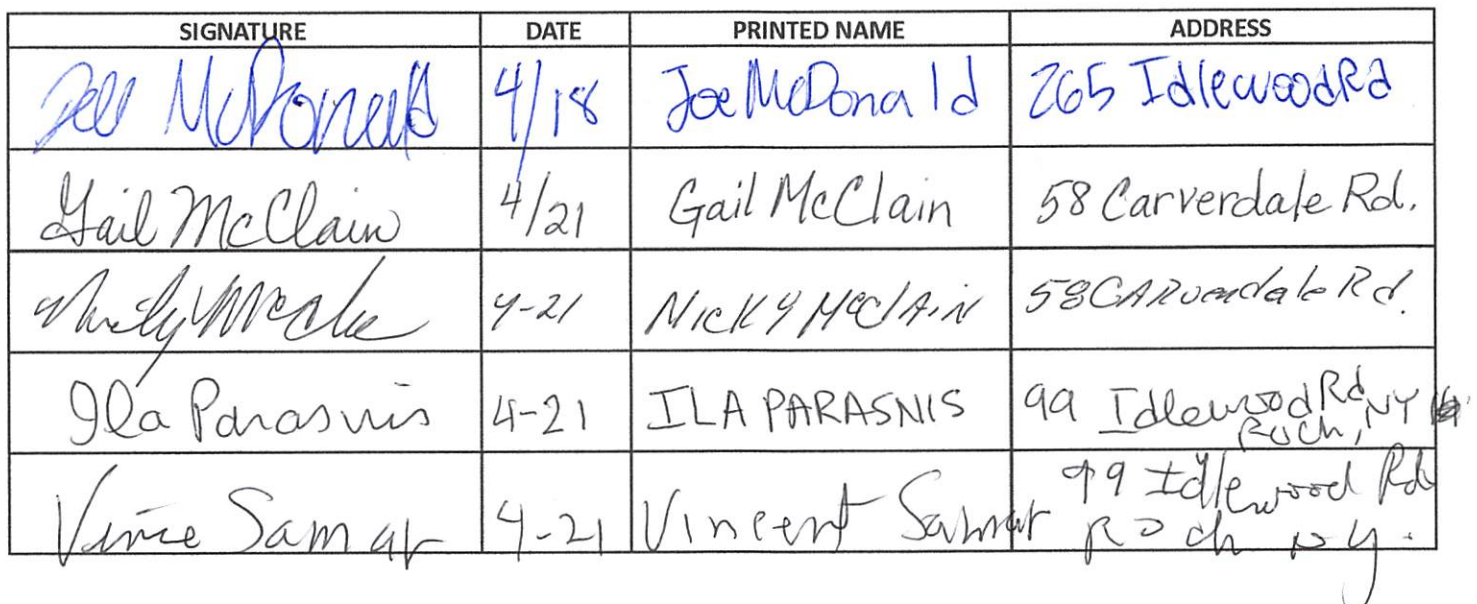 SIGNATURE DATE PRINTED NAME ADDRESS
McDonald 4/18 Joe McDonald 265 Idlewood Rd
Gail McClain 4/21 Gail McClain 58 Carverdale Rd.
4-21 Nicky McClain 58 Carverdale Rd.
Ila Parasnis 4-21 ILA PARASNIS 99 Idlewood Rd
Roch, NY
Vince Samar 4-21 Vincent Samar 99 Idlewood Rd
Roch NY.